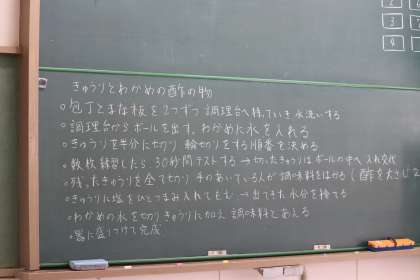 きゅうりとわかめの酢の物
○包丁とまな板を2つずつ 調理台へ持っていき水洗いする
○調理台からボールを出す。わかめに水を入れる
○きゅうりを半分に切り 輪切りをする順番を決める
○数枚練習したら 30秒間テストする→切ったきゅうりはボールの中へ 入れ交代
○残ったきゅうりを全て切り 手のあいている人が調味料をはかる(酢を大さじ2
○きゅうりに塩をひとつまみ入れてもむ→出てきた水分を捨てる
○わかめの水を切りきゅうりに加え 調味料とあえる
○器に盛りつけて完成
2
3
4